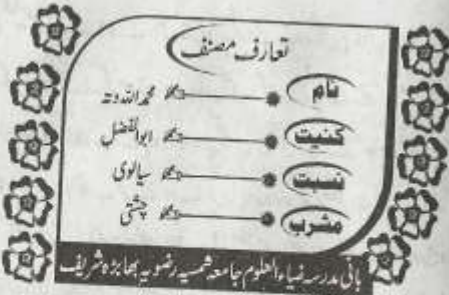 تعارف مصنف
نام محمد اللہ دتہ
کنیت ابوالفضل
نسبت سیالوی
مشرب چشتی
بانی مدرسہ ضیاء العلوم جامعہ شمسیہ رضویہ بھابڑہ شریف